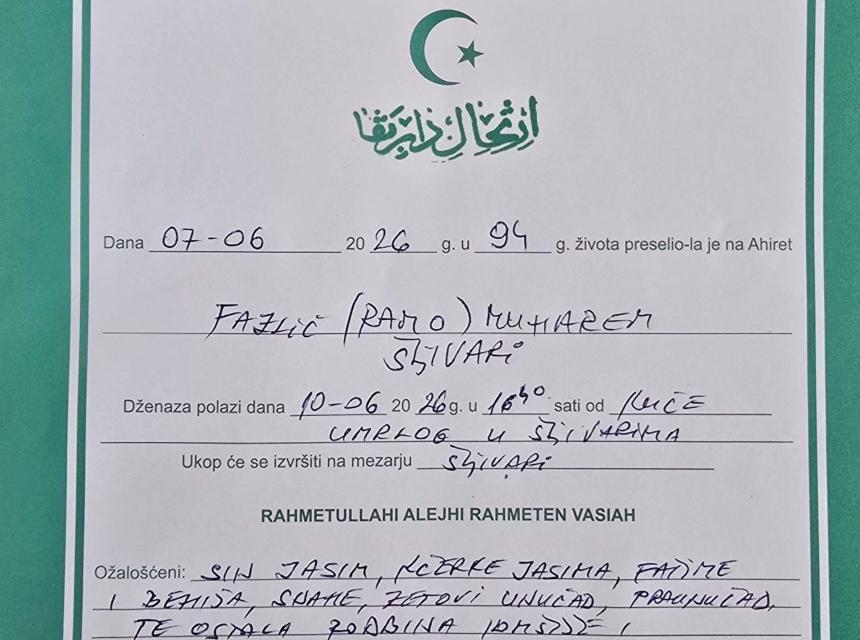 ارتحال دار بقا
Dana 07-06 2026 g. u 94 g. života preselio-la je na Ahiret
FAZLIĆ (RAMO) MUHAREM
ŠLJIVARI
Dženaza polazi dana 10-06 2026 g. u 16⁴⁰ sati od KUĆE
UMRLOG U ŠLJIVARIMA
Ukop će se izvršiti na mezarju ŠLJIVARI
RAHMETULLAHI ALEJHI RAHMETEN VASIAH
Ožalošćeni: SIN JASIM, KĆERKE JASIMA, FATIME
I BEHIJA, SNAHE, ZETOVI UNUČAD, PRAUNUČAD,
TE OSTALA RODBINA I